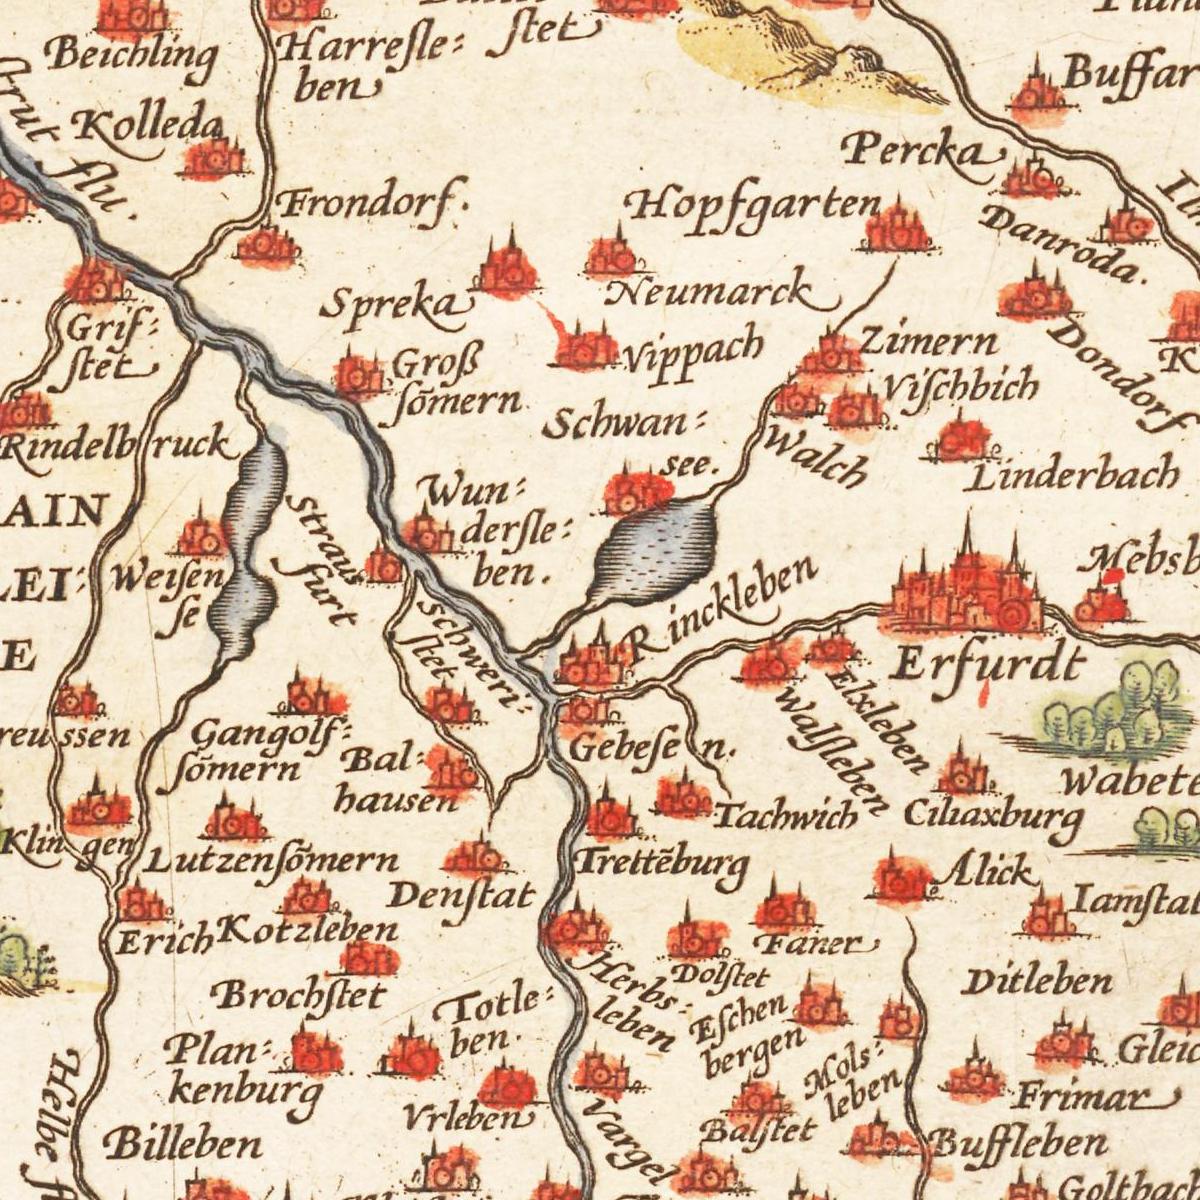 Beichling
Harresle:
ben
stet
Buffar
Kolleda
flu.
Percka
Frondorf.
Hopfgarten
Danroda.
Spreka
Neumarck
Grif:
stẽt
Groß
sõmern
Vippach
Zimern
Dondorf
Vischbich
Rindelbruck
Schwan:
see.
Walch
Linderbach
AIN
Wun:
dersle:
ben.
Straus
furt
LEI:
Weisen
se
Schweri:
stet
Rinckleben
Mebsb
E
Erfurdt
reussen
Gangolf:
sõmern
Bal:
hausen
Gebesen.
Walsleben
Elxleben
Wabete
Klingen
Tachwich
Ciliaxburg
Lutzensõmern
Trettẽburg
Denstat
Alick
Iamstat
Erich
Kotzleben
Faner
Herbs:
leben
Dolstet
Ditleben
Brochstet
Totle:
ben.
Eschen
bergen
Plan:
kenburg
Mols:
leben
Gleic
Frimar
Helbe fl
Vrleben
Vargel
Balstet
Billeben
Buffleben
Golthach